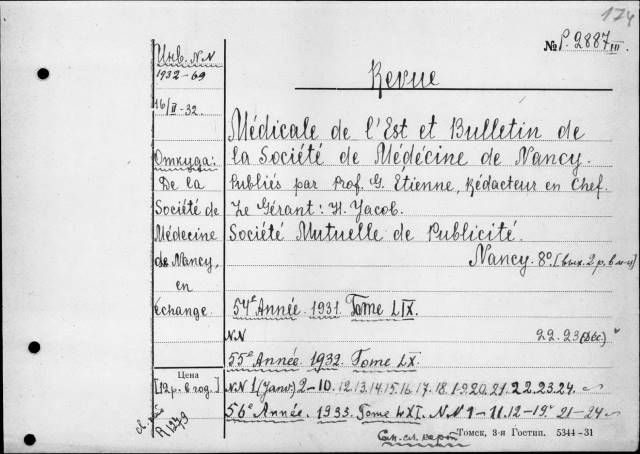 174
№ P. 2887 III.
Revue
Médicale de l'Est et Bulletin de
la Société de Médécine de Nancy.
Publiés par Prof. G. Étienne, Rédacteur en Chef.
Le Gérant: H. Jacob.
Société Mutuelle de Publicité.
Nancy. 8º. [вых. 2 р. в м-ц]
54e Année. 1931. Tome LIX.
NN 22.23 (Déc.)
55e Année. 1932. Tome LX.
NN 1 (Janv.) 2-10. 12.13.14.15.16.17.18.19.20.21.22.23.24.
56e Année. 1933. Tome LXI. NN 1-11. 12-19. 21-24
Инв. NN
1932-69
16/II-32.
Откуда:
De la
Société de
Médecine
de Nancy,
en
échange.
Цена
[12р. в год.]
R 1279
Томск, 3-я Гостип. 5344-31